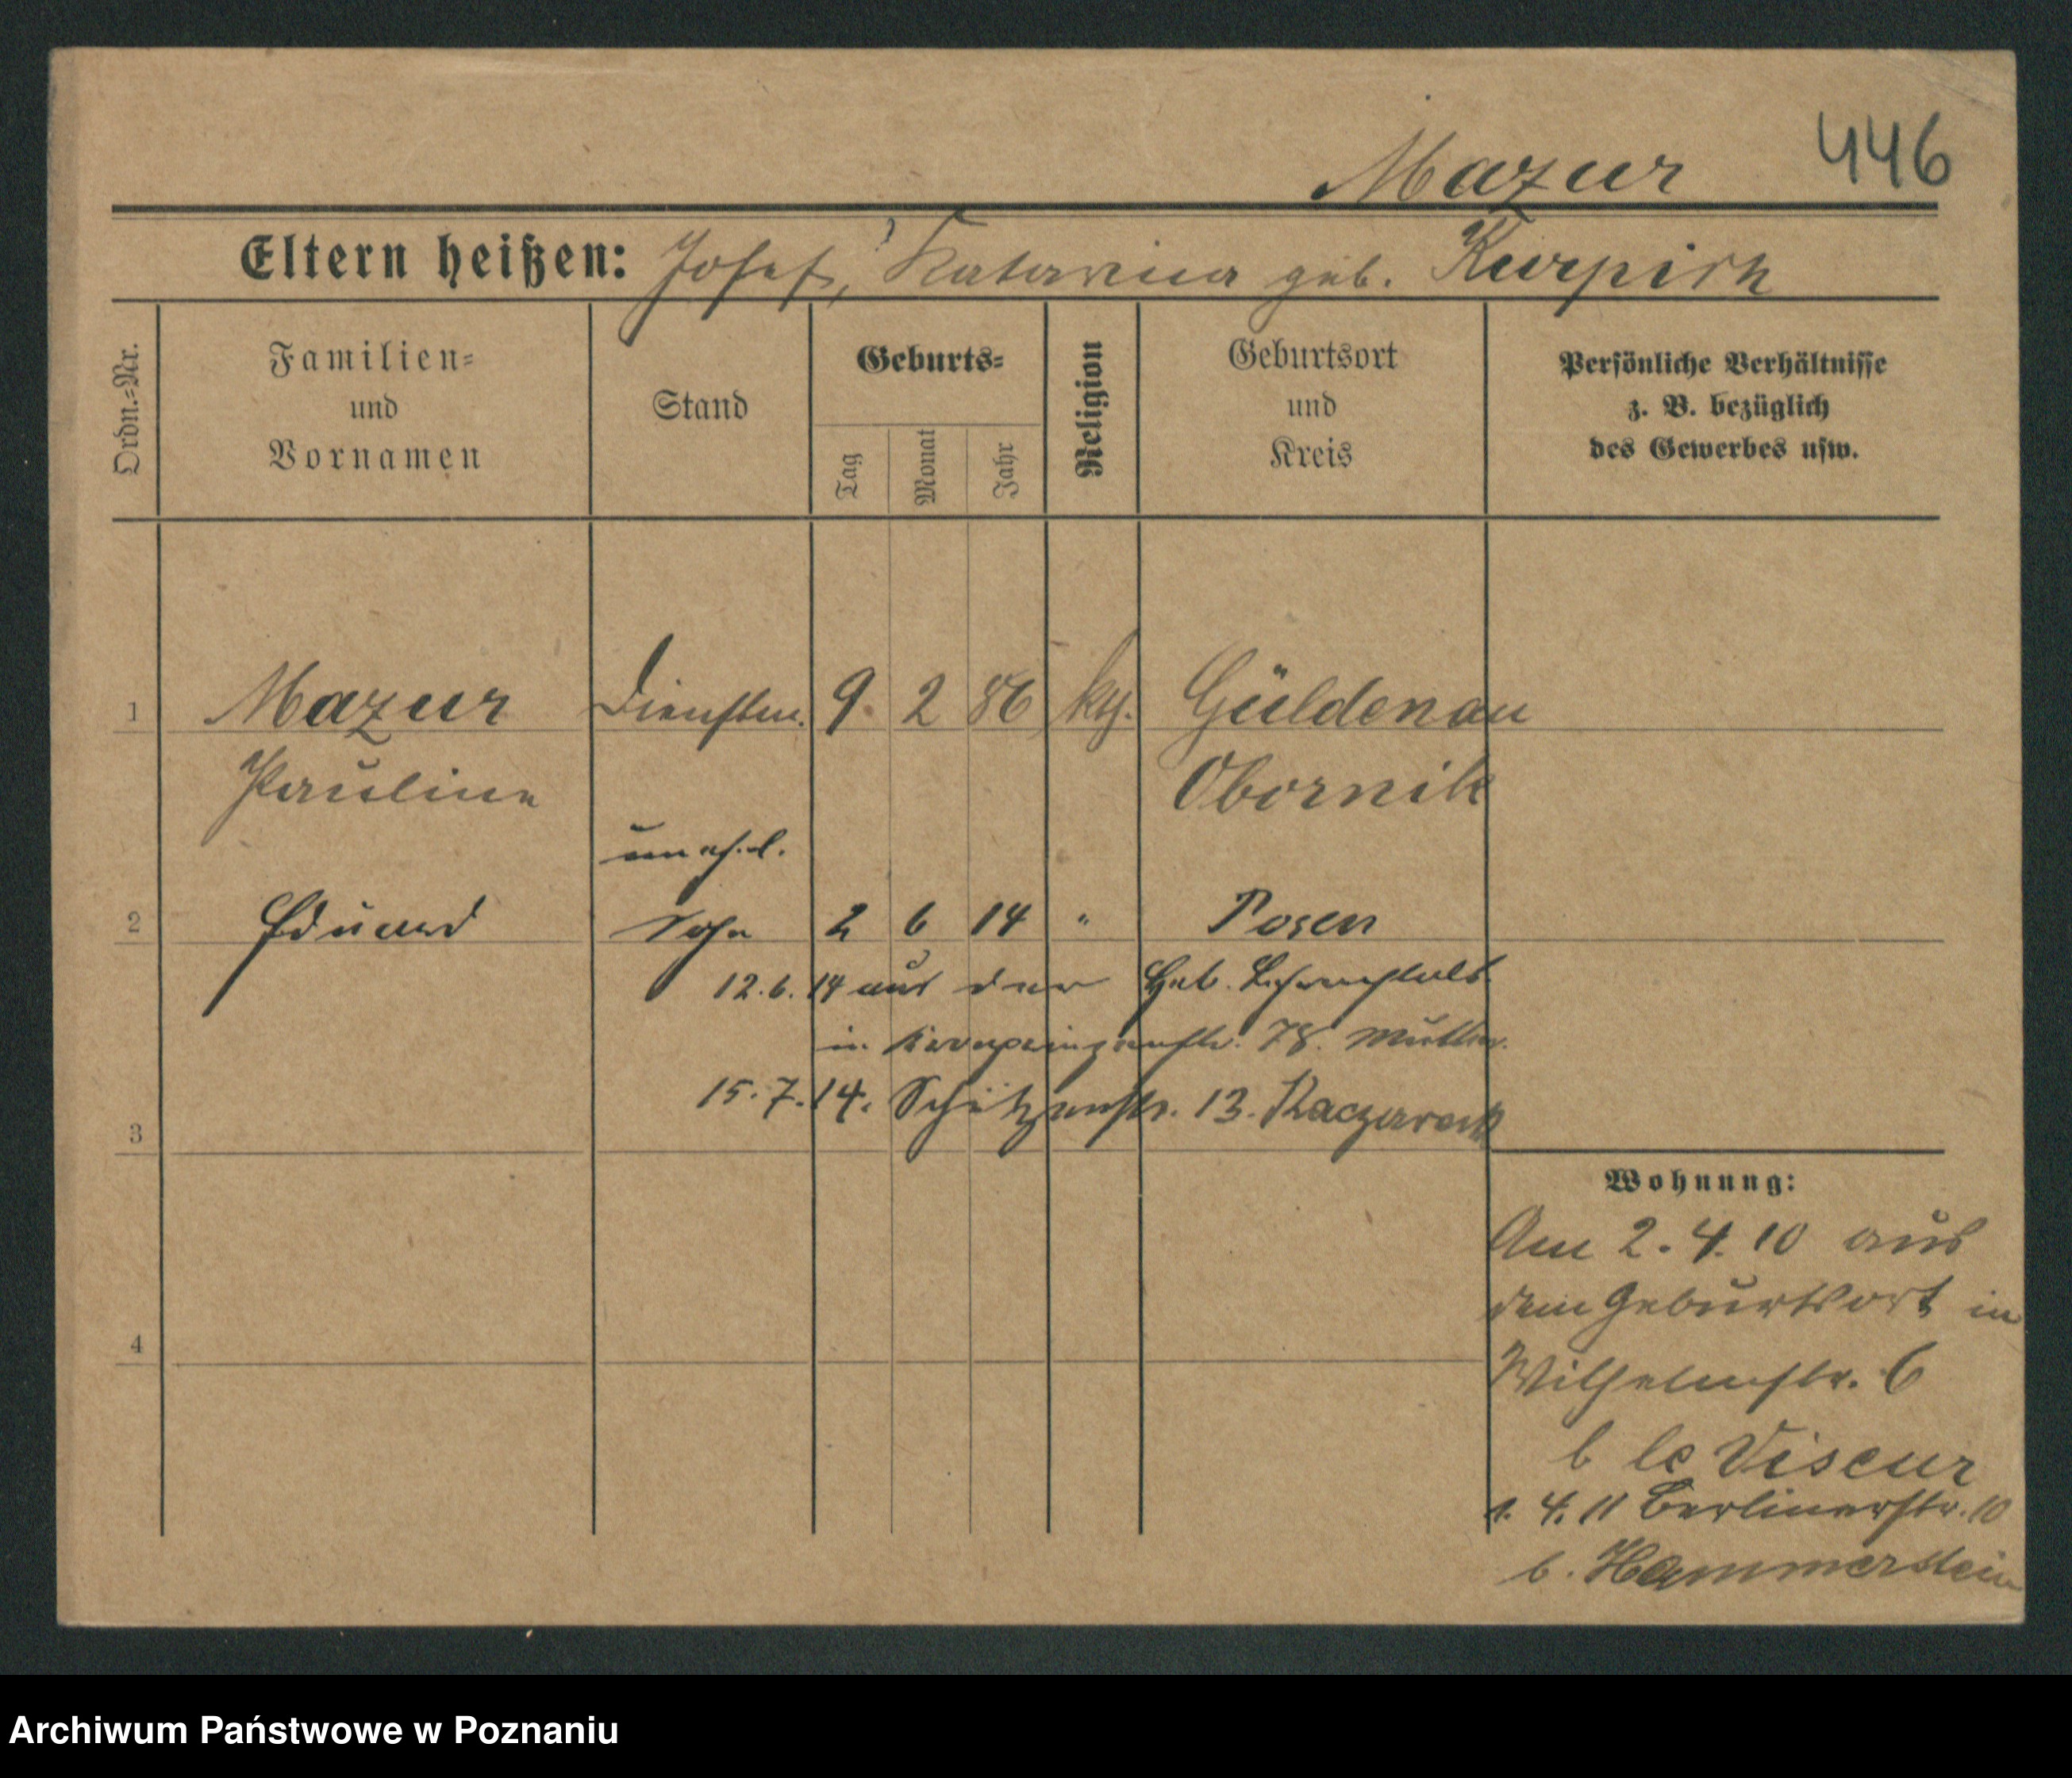 446
Mazur
Eltern heißen: Josef, Katarina geb. Kurpisk
Ordn.-Nr.
Familien-
und
Vornamen
Stand
Geburts-
Tag
Monat
Jahr
Religion
Geburtsort
und
Kreis
Persönliche Verhältnisse
z. B. bezüglich
des Gewerbes usw.
1 Mazur Dienstm. 9. 2 86 kth. Güldenau
Pauline Obornik
unehel.
2 Eduard Sohn 2 6 14 " Posen
12. 6. 14 aus der Heb. Lehranstalt
in Kronprinzenstr. 78. Mutter.
15. 7. 14. Schützenstr. 13.
3
4
Wohnung:
Am 2. 4. 10 aus
dem Geburtsort in
Wilhelmstr. 6
b le Viseur
1. 4. 11 Berlinerstr. 10
b. Hammerstein
Archiwum Państwowe w Poznaniu